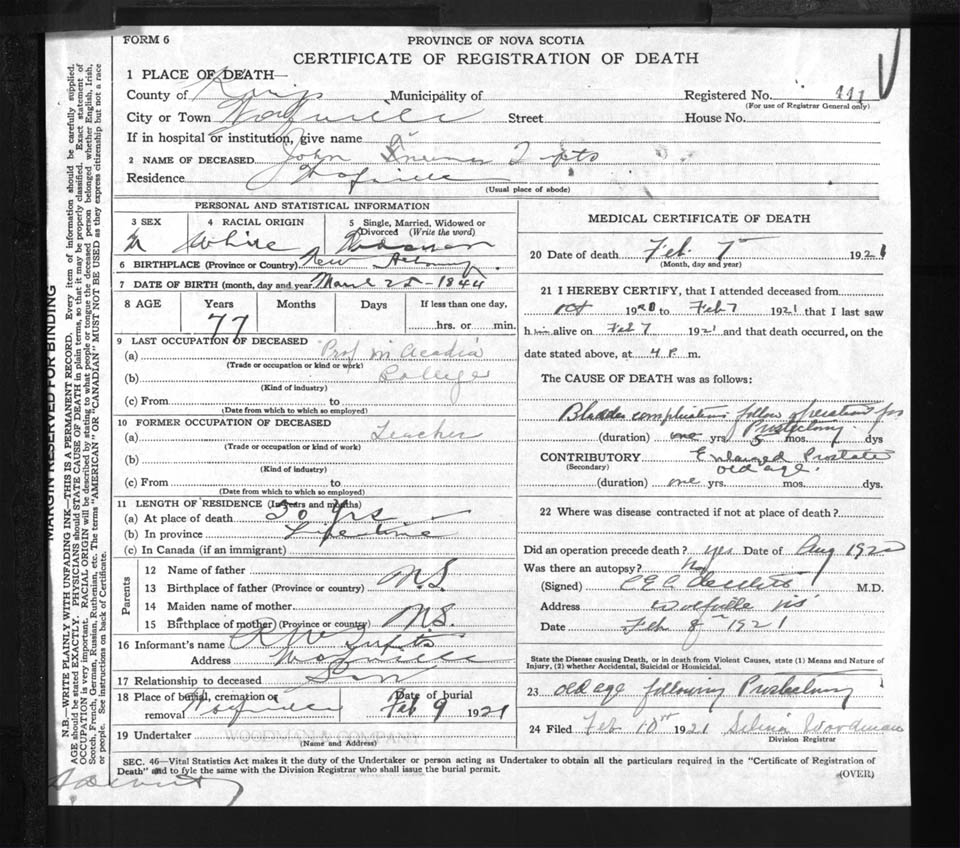 FORM 6
PROVINCE OF NOVA SCOTIA
CERTIFICATE OF REGISTRATION OF DEATH
1 PLACE OF DEATH—
County of Kings Municipality of Registered No. 441
(For use of Registrar General only)
City or Town Wolfville Street House No.
If in hospital or institution, give name
2 NAME OF DECEASED John Tufts
Residence Wolfville
(Usual place of abode)
PERSONAL AND STATISTICAL INFORMATION
3 SEX 4 RACIAL ORIGIN 5 Single, Married, Widowed or Divorced (Write the word)
M White Widower
6 BIRTHPLACE (Province or Country) New Albany
7 DATE OF BIRTH (month, day and year) March 25-1844
8 AGE Years Months Days If less than one day,
77 hrs. or min.
9 LAST OCCUPATION OF DECEASED
(a) Prof in Acadia
(Trade or occupation or kind or work)
(b) College
(Kind of industry)
(c) From to
(Date from which to which so employed)
10 FORMER OCCUPATION OF DECEASED
(a) Teacher
(Trade or occupation or kind of work)
(b)
(Kind of industry)
(c) From to
(Date from which to which so employed)
11 LENGTH OF RESIDENCE (In years and months)
(a) At place of death 30 yrs
(b) In province Lifetime
(c) In Canada (if an immigrant)
Parents
12 Name of father
13 Birthplace of father (Province or country) N.S.
14 Maiden name of mother
15 Birthplace of mother) (Province or country) N.S.
16 Informant's name R W Tufts
Address Wolfville
17 Relationship to deceased Son
18 Place of burial, cremation or removal Wolfville Date of burial Feb 9 1921
19 Undertaker
(Name and Address)
MEDICAL CERTIFICATE OF DEATH
20 Date of death Feb. 7th 1921
(Month, day and year)
21 I HEREBY CERTIFY, that I attended deceased from
Oct 1920 to Feb 7 1921 that I last saw
him alive on Feb 7 1921 and that death occurred, on the
date stated above, at 4 P. m.
The CAUSE OF DEATH was as follows:
Bladder complications follow operation for
Prostectomy
(duration) one yrs. 5 mos. dys
CONTRIBUTORY Enlarged Prostate
(Secondary) old age.
(duration) one yrs. mos. dys.
22 Where was disease contracted if not at place of death?
Did an operation precede death? yes Date of Aug 1920
Was there an autopsy? No
(Signed) M.D.
Address Wolfville NS
Date Feb 8th 1921
State the Disease causing Death, or in death from Violent Causes, state (1) Means and Nature of
Injury, (2) whether Accidental, Suicidal or Homicidal.
23 old age following Prostectomy
24 Filed Feb 10th 1921 Selina Woodman
Division Registrar
SEC. 46—Vital Statistics Act makes it the duty of the Undertaker or person acting as Undertaker to obtain all the particulars required in the "Certificate of Registration of
Death" and to fyle the same with the Division Registrar who shall issue the burial permit.
(OVER)
MARGIN RESERVED FOR BINDING
N.B.—WRITE PLAINLY WITH UNFADING INK—THIS IS A PERMANENT RECORD. Every item of information should be carefully supplied.
AGE should be stated EXACTLY. PHYSICIANS should STATE CAUSE OF DEATH in plain terms, so that it may be properly classified. Exact statement of
OCCUPATION is very important. RACIAL ORIGIN will be described by stating to what people or tongue the deceased person belonged whether English, Irish,
Scotch, French, German, Russian, Ruthenian, etc. The terms "AMERICAN" OR "CANADIAN" MUST NOT BE USED as they express citizenship but not a race
or people. See instructions on back of Certificate.